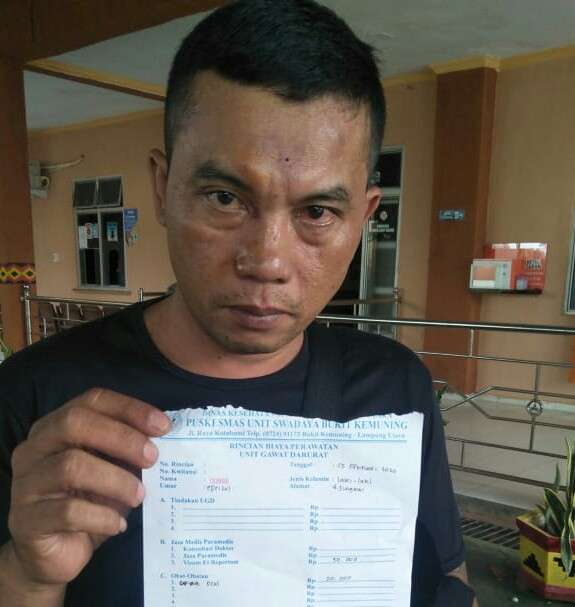 DINAS KESEHATA
PUSKESMAS UNIT SWADAYA BUKIT KEMUNING
Jl. Raya Kotabumi Telp. (0724) 91175 Bukit Kemuning - Lampung Utara
RINCIAN BIAYA PERAWATAN
UNIT GAWAT DARURAT
No. Rincian : Tanggal :
No. Kwitansi :
Nama : Jenis Kelamin : laki-laki
Umur : Alamat :
A. Tindakan UGD
1. Rp
2. Rp
3. Rp
4. Rp
B. Jasa Medis Paramedis
1. Konsultasi Dokter Rp
2. Jasa Paramedis Rp
3. Visum Et Repertum Rp 50.000
C. Obat-Obatan
1. Rp 20.000
2. Rp
3. Rp
4.